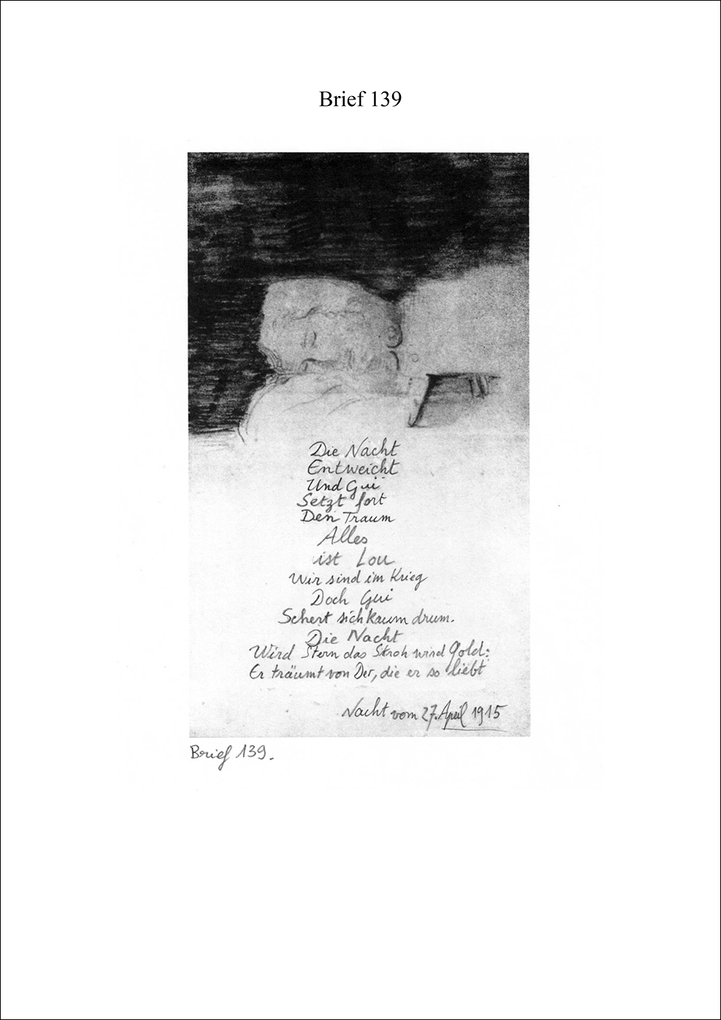 Brief 139
Die Nacht
Entweicht
Und Gui
Setzt fort
Den Traum
Alles
ist Lou
Wir sind im Krieg
Doch Gui
Schert sich kaum drum.
Die Nacht
Wird Stern das Stroh wird Gold:
Er träumt von Der, die er so liebt
Nacht vom 27. April 1915
Brief 139.